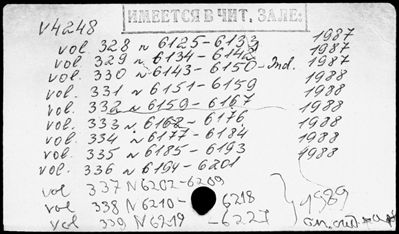 ИМЕЕТСЯ В ЧИТ. ЗАЛЕ:
V4248
vol. 328 N 6125-6133 1987
vol. 329 N 6134-6142 1987
vol. 330 N 6143-6150-Ind. 1987
vol. 331 N 6151-6159 1988
vol. 332 N 6159-6167 1988
vol. 333 N 6168-6176 1988
vol. 334 N 6177-6184 1988
vol. 335 N 6185-6193 1988
vol. 336 N 6194-6201
vol 337 N 6202-6209
vol 338 N 6210- 6218 1989
vol 339 N 6219 -622